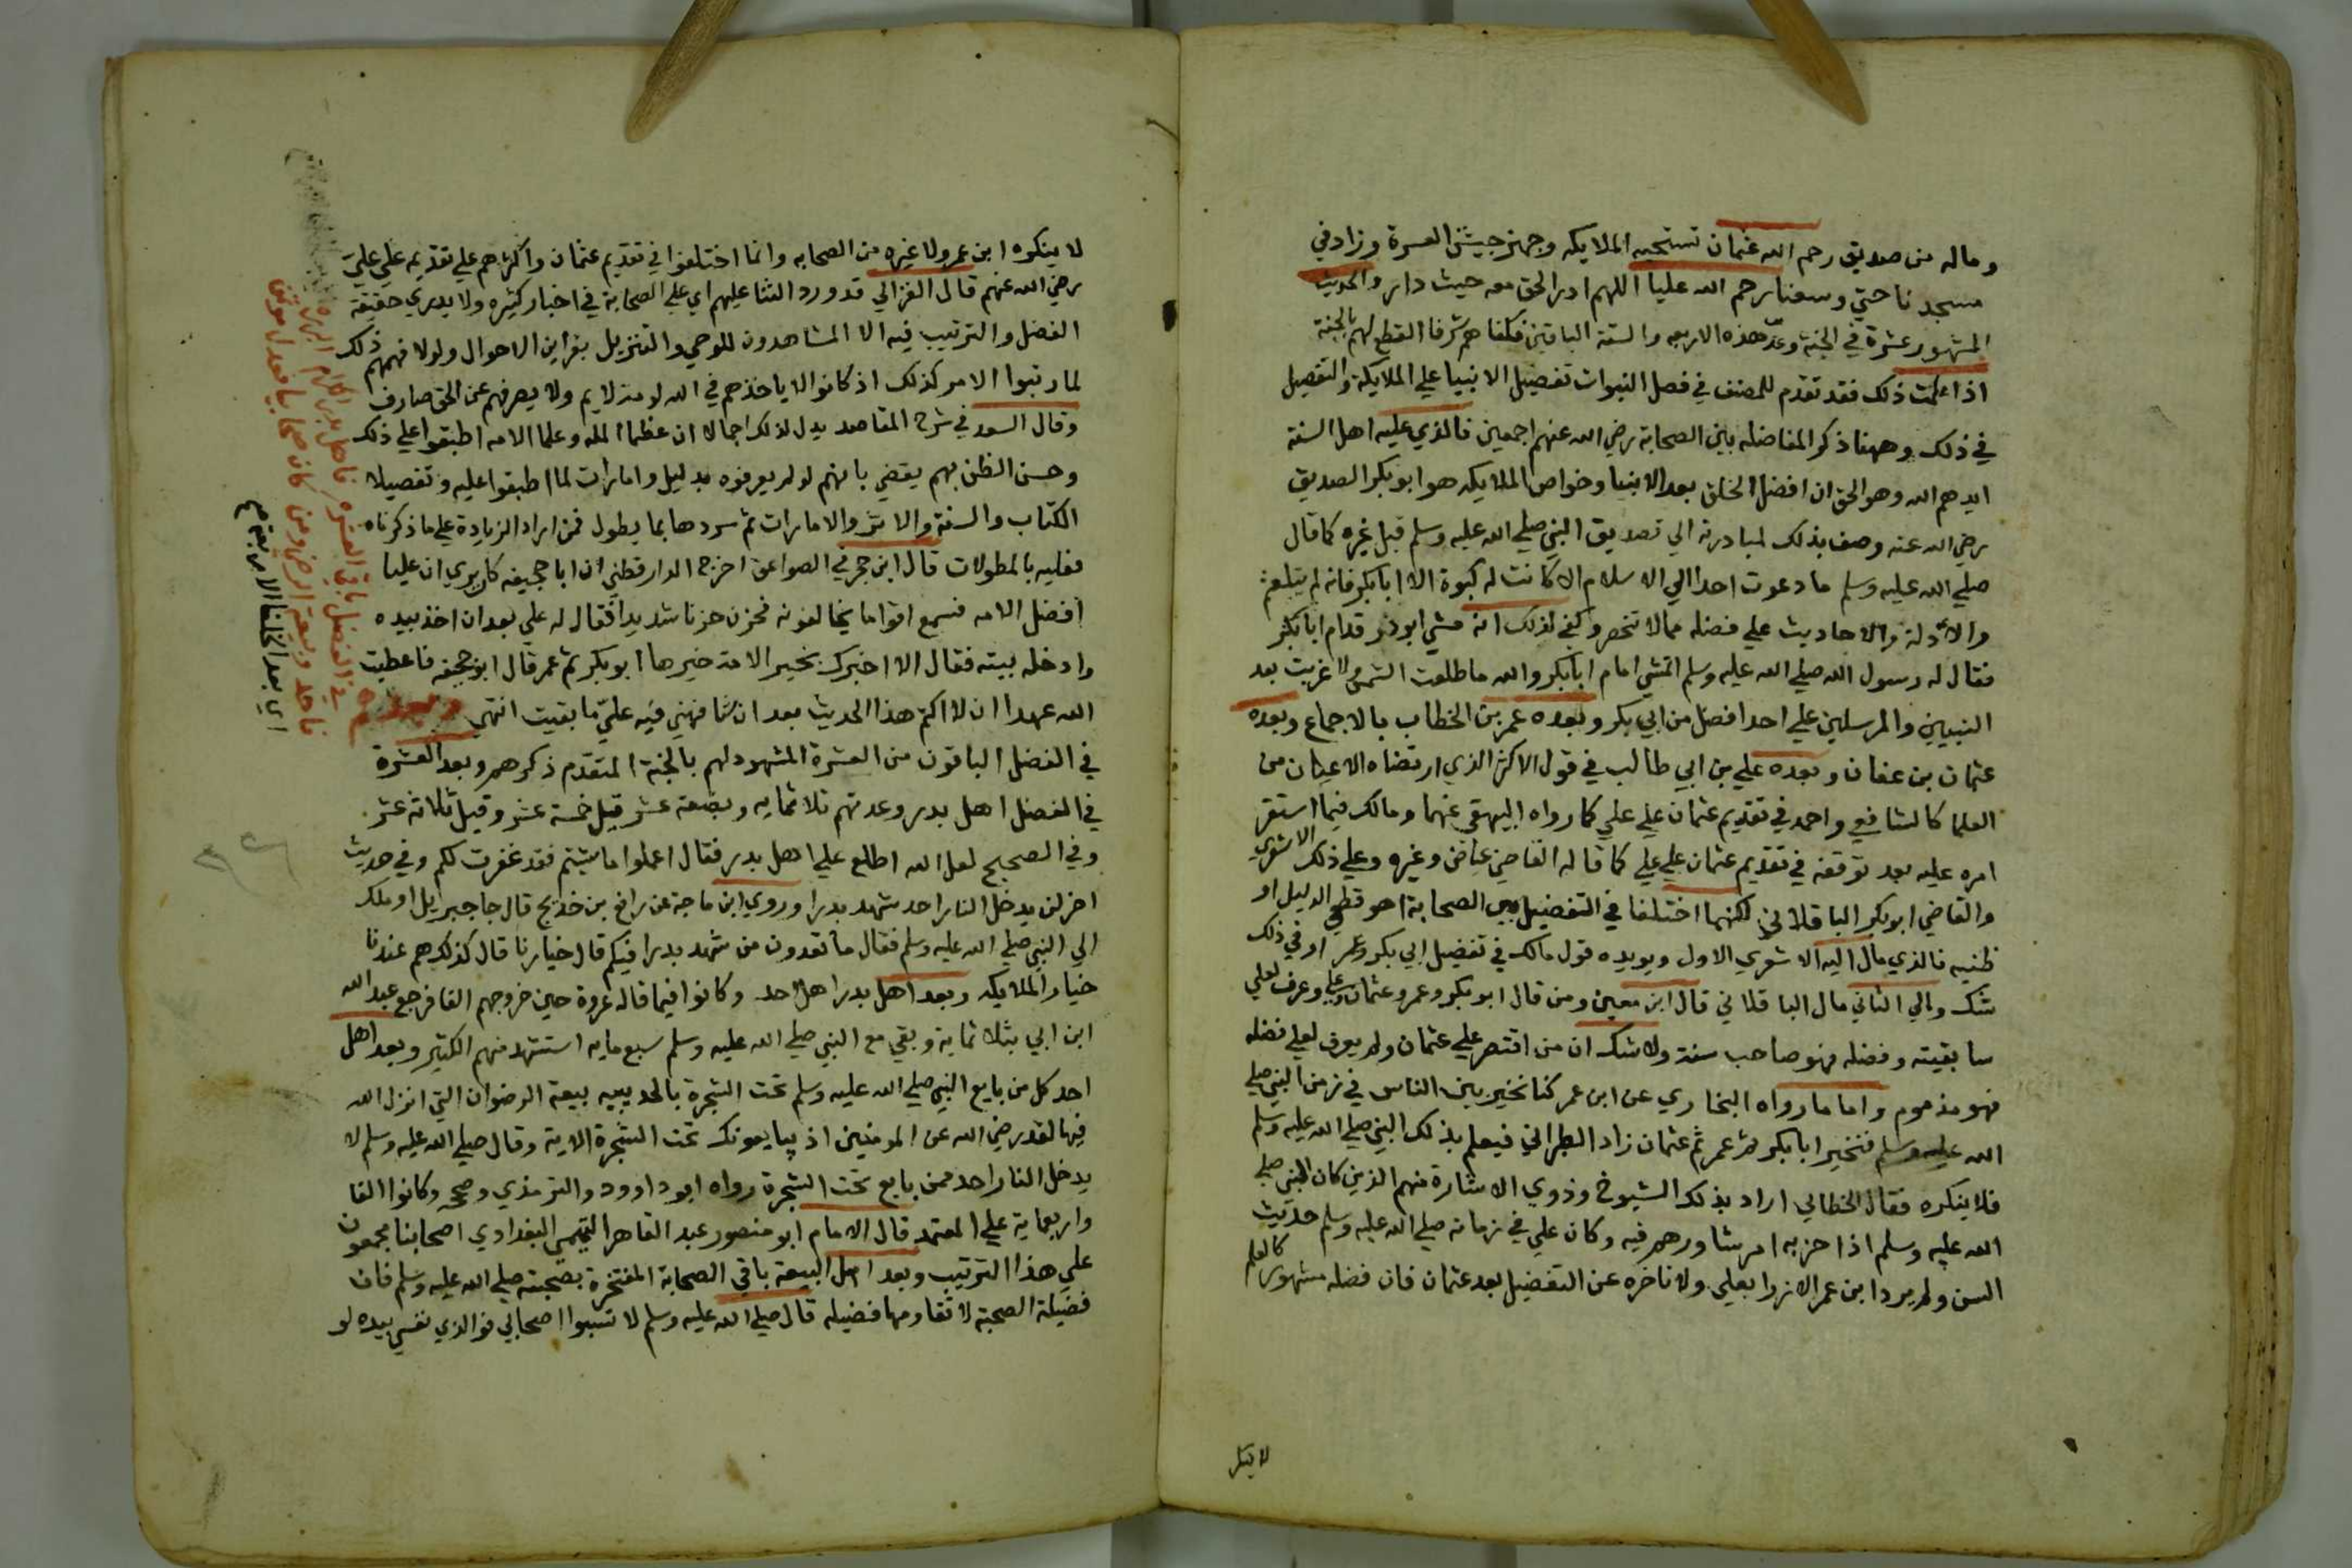 وماله من صديق رحم الله عثمان تستحيه الملايكه وجهز جيش العسرة وزاد في
مسجدنا حتي وسعنا رحم الله عليا اللهم ادر الحق معه حيث دار والحديث
المشهور عشرة في الجنة وعد هذه الاربعه والستة الباقين فكلفا هم شرفا القطع لهم بالجنة
اذا علمت ذلك فقد تقدم للمصنف في فصل النبوات تفضيل الانبيا علي الملايكة والتفصيل
في ذلك وههنا ذكر المفاضله بين الصحابة رضي الله عنهم اجمعين فالذي عليه اهل السنة
ايدهم الله وهو الحق ان افضل الخلق بعد الانبيا وخواص الملايكه هو ابو بكر الصديق
رضي الله عنه وصف بذلك لمبادرته الي تصديق النبي صلي الله عليه وسلم قبل غيره كما قال
صلي الله عليه وسلم ما دعوت احدا الي الاسلام الا كانت له كبوة الا ابا بكر فانه لم يتلعثم
والادلة والاحاديث علي فضله مما لا تنحصر وكفي لذلك انه مشي ابو ذر قدام ابا بكر
فقال له رسول الله صلي الله عليه وسلم اتمشي امام ابا بكر والله ما طلعت الشمس ولا غربت بعد
النبيين والمرسلين علي احد افضل من ابي بكر وبعده عمر بن الخطاب بالاجماع وبعده
عثمان بن عفان وبعده علي بن ابي طالب في قول الاكثر الذي ارتضاه الاعيان من
العلما كالشافعي واحمد في تقديم عثمان علي علي كما رواه البيهقي عنهما ومالك فيما استقر
امره عليه بعد توقفه في تقديم عثمان علي علي كما قاله القاضي عياض وغيره وعلي ذلك الاشعري
والقاضي ابو بكر الباقلاني لكنهما اختلفا في التفضيل بين الصحابة اهو قطعي الدليل او
ظنيه فالذي مال اليه الاشعري الاول ويويده قول مالك في تفضيل ابي بكر وعمر او في ذلك
شك والي الثاني مال الباقلاني قال ابن معين ومن قال ابو بكر وعمر وعثمان وعلي وعرف لعلي
سابقيته وفضله فهو صاحب سنة ولا شك ان من اقتصر علي عثمان ولم يعرف لعلي فضله
فهو مذموم واما ما رواه البخاري عن ابن عمر كنا نخير بين الناس في زمن النبي صلي
الله عليه وسلم فنخير ابا بكر ثم عمر ثم عثمان زاد الطبراني فيعلم بذلك النبي صلي الله عليه وسلم
فلا ينكره فقال الخطابي اراد بذلك الشيوخ وذوي الاشارة منهم الذين كان النبي صلي
الله عليه وسلم اذا حزبه امر شاورهم فيه وكان علي في زمانه صلي الله عليه وسلم حديث
السن ولم يرد ابن عمر الازرا بعلي ولا تاخره عن التفضيل بعد عثمان فان فضله مشهور كالعلم
لا ينكر
لا ينكره ابن عمر ولا غيره من الصحابه وانما اختلفوا في تقديم عثمان واكثرهم علي تقديمه علي علي
رضي الله عنهم قال الغزالي قد ورد الثنا عليهم اي علي الصحابة في اخبار كثيره ولا يدري حقيقة
الفضل والترتيب فيه الا المشاهدون للوحي والتنزيل بقراين الاحوال ولولا فهمهم ذلك
لما رتبوا الامر كذلك اذ كانوا لا ياخذهم في الله لومة لايم ولا يصرفهم عن الحق صارف
وقال السعد في شرح المقاصد يدل لذلك اجمالا ان عظما المله وعلما الامه اطبقوا علي ذلك
وحسن الظن بهم يقضي بانهم لو لم يعرفوه بدليل وامارات لما اطبقوا عليه وتفصيلا
الكتاب والسنة والاثر والامارات ثم سردها بما يطول فمن اراد الزيادة علي ما ذكرناه
فعليه بالمطولات قال ابن حجر في الصواعق اخرج الدارقطني ان ابا جحيفه كان يري ان عليا
افضل الامه فسمع اقواما يخالفونه فحزن حزنا شديدا فقال له علي بعد ان اخذ بيده
وادخله بيته فقال الا اخبرك بخير الامة خيرها ابو بكر ثم عمر قال ابو جحيفه فاعطيت
الله عهدا ان لا اكتم هذا الحديث بعد ان شافهني فيه علي ما بقيت انتهي
في الفضل الباقون من العشرة المشهود لهم بالجنة المتقدم ذكرهم وبعد العشرة
في الفضل اهل بدر وعدتهم ثلاثمايه وبضعة عشر قيل خمسة عشر وقيل ثلاثة عشر
وفي الصحيح لعل الله اطلع علي اهل بدر فقال اعملوا ما شيتم فقد غفرت لكم وفي حديث
اخر لن يدخل النار احد شهد بدرا وروي ابن ماجة عن رافع بن خديج قال جا جبرايل او ملك
الي النبي صلي الله عليه وسلم فقال ما تعدون من شهد بدرا فيكم قال خيارنا قال كذلك هم عندنا
خيار الملايكه وبعد اهل بدر اهل احد وكانوا فيما قاله عروة حين خروجهم الفا فرجع عبد الله
ابن ابي بثلاثماية وبقي مع النبي صلي الله عليه وسلم سبعمايه استشهد منهم الكثير وبعد اهل
احد كل من بايع النبي صلي الله عليه وسلم تحت الشجرة بالحديبيه بيعة الرضوان التي انزل الله
فيها لقد رضي الله عن المومنين اذ يبايعونك تحت الشجرة الاية وقال صلي الله عليه وسلم لا
يدخل النار احد ممن بايع تحت الشجرة رواه ابو داوود والترمذي وصححه وكانوا الفا
واربعماية علي المعتمد قال الامام ابو منصور عبد القاهر التميمي البغدادي اصحابنا مجمعون
علي هذا الترتيب وبعد اهل البيعة باقي الصحابة المفتخرة بصحبته صلي الله عليه وسلم فان
فضيلة الصحبة لا تقاومها فضيله قال صلي الله عليه وسلم لا تسبوا اصحابي فوالذي نفسي بيده لو
في الفضل باقي العشره فاهل بدر
فاحد وبيعة الرضوان
اي بعد الخلفا الاربعة